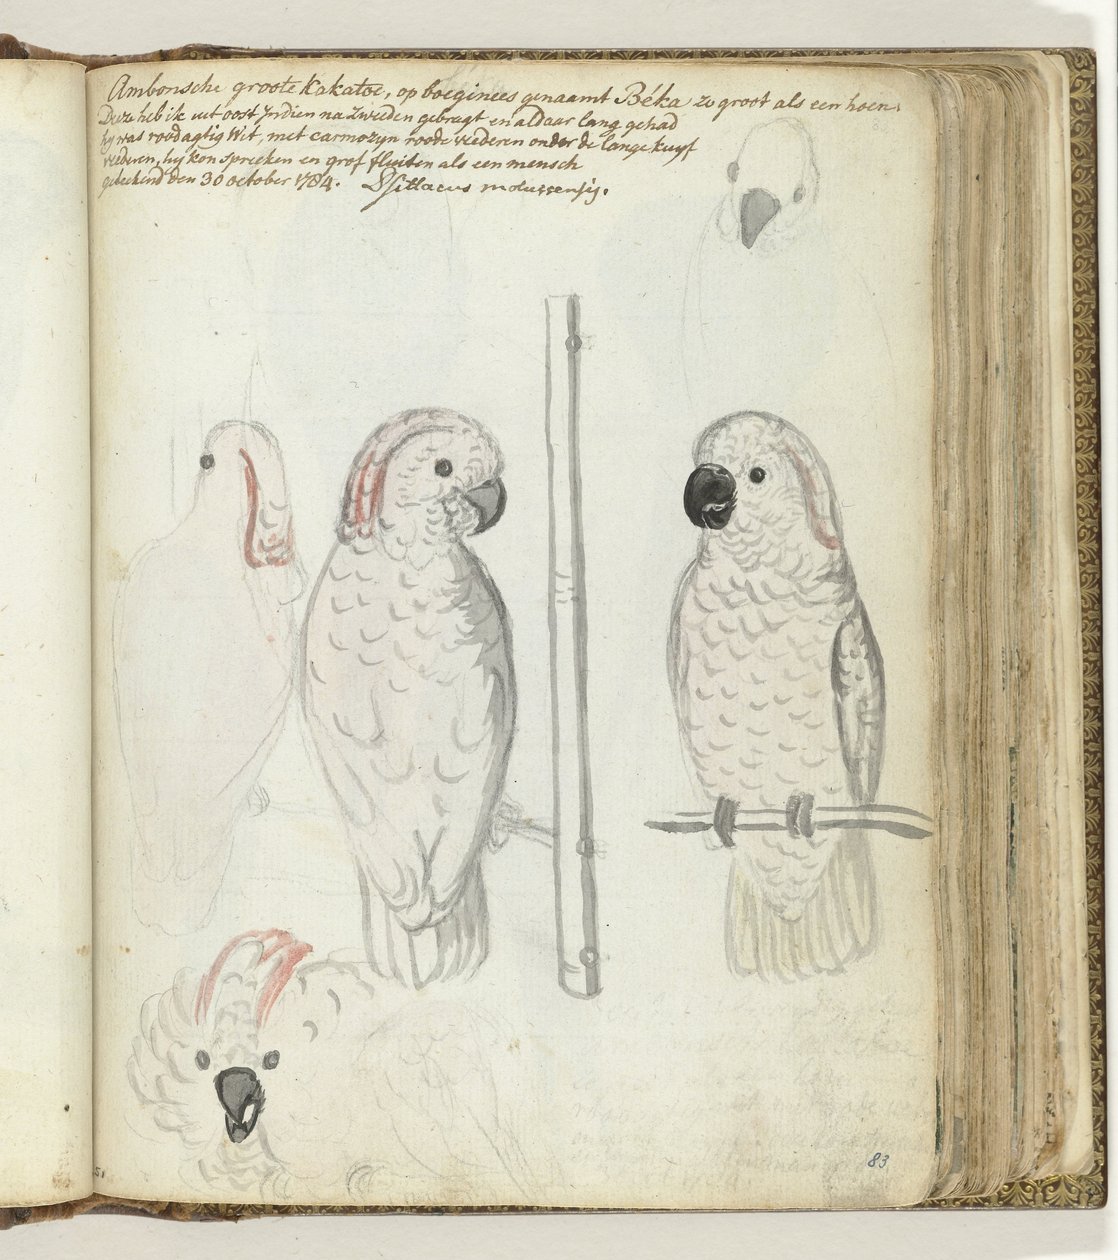 Ambonsche groote Kakatoe, op boeginees genaamt Béka zo groot als een hoen,
Deze heb ik uit oost Indien na Zweden gebragt en aldaar lang gehad
hy was roodagtig Wit, met carmozyn roode vederen onder de lange kuyf
vederen, hy kon spreeken en grof fluiten als een mensch
getekend den 30 october 1784. Psittacus molussensis.
83
51